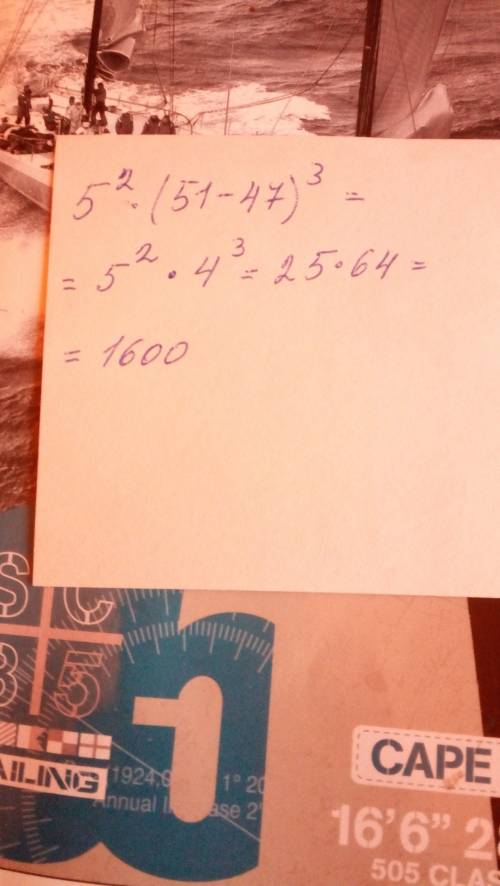 5² · (51-47)³ =
= 5² · 4³ = 25·64 =
= 1600
S C
3 5
AILING
1
1924,
1° 20
Annual
ase 2'
CAPE
16'6" 2
505 CLAS